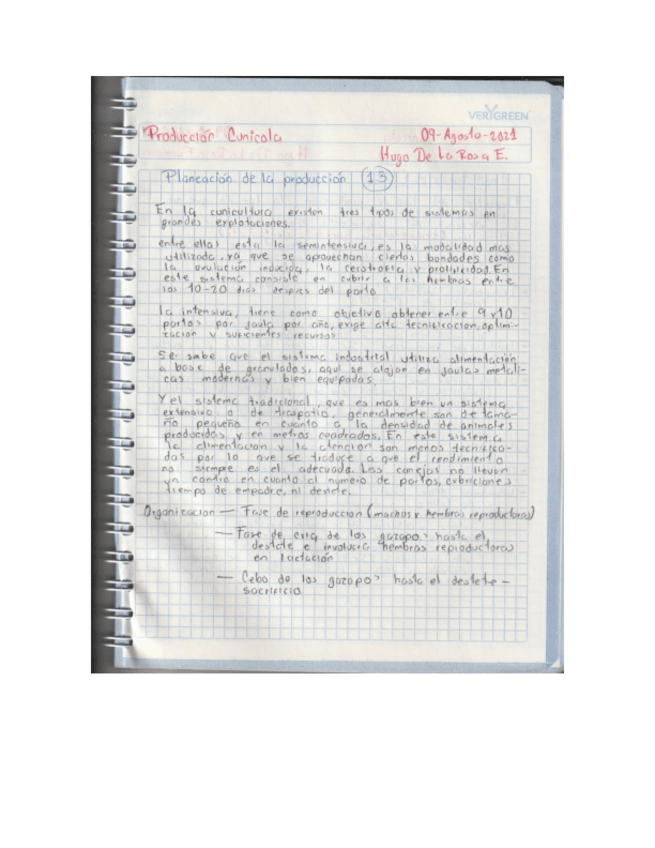 VERYGREEN
Producción Cunicola 09-Agosto-2021
Hugo De La Rosa E.
Planeación de la producción 13
En la cunicultura existen tres tipos de sistemas en
grandes explotaciones.
entre ellas esta la semintensiva, es la modalidad mas
utilizada, ya que se aprovechan ciertas bondades como
la ovulación inducida, la y prolificidad. En
este sistema consiste en cubrir a las hembras entre
los 10-20 dias despues del parto
la intensiva, tiene como objetivo obtener entre 9 y 10
partos por jaula por año, exige alta tecnificacion, optimi-
zación y suficientes recursos
Se sabe que el sistema industrial utiliza alimentación
a base de granulados, aqui se alojan en jaulas metali-
cas modernas y bien equipadas
Y el sistema tradicional, que es mas bien un sistema
extensivo o de traspatio, generalmente son de tama-
ño pequeño en cuanto a la densidad de animales
producidos y en metros cuadrados. En este sistema
la alimentacion y la atencion son menos tecnifica-
das por lo que se traduce a que el rendimiento
no siempre es el adecuado. Los conejos no llevan
un contro en cuanto al numero de partos, cubriciones
tiempo de empadre, ni destete.
Organizacion — Fase de reproduccion (machos y hembras reproductoras)
— Fase de cria de los gazapos hasta el
destete e involucra hembras reproductoras
en lactación
— Cebo de los gazapos hasta el destete -
sacrificio